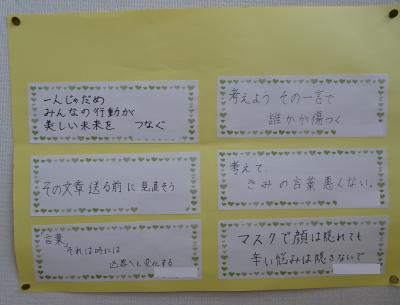 一人じゃだめ
みんなの行動が
美しい未来を つなぐ
その文章送る前に見直そう
言葉
それは時には
凶器へと変化する
考えよう その一言で
誰かが傷つく
考えて、
きみの言葉悪くない。
マスクで顔は隠れても
辛い悩みは隠さないで